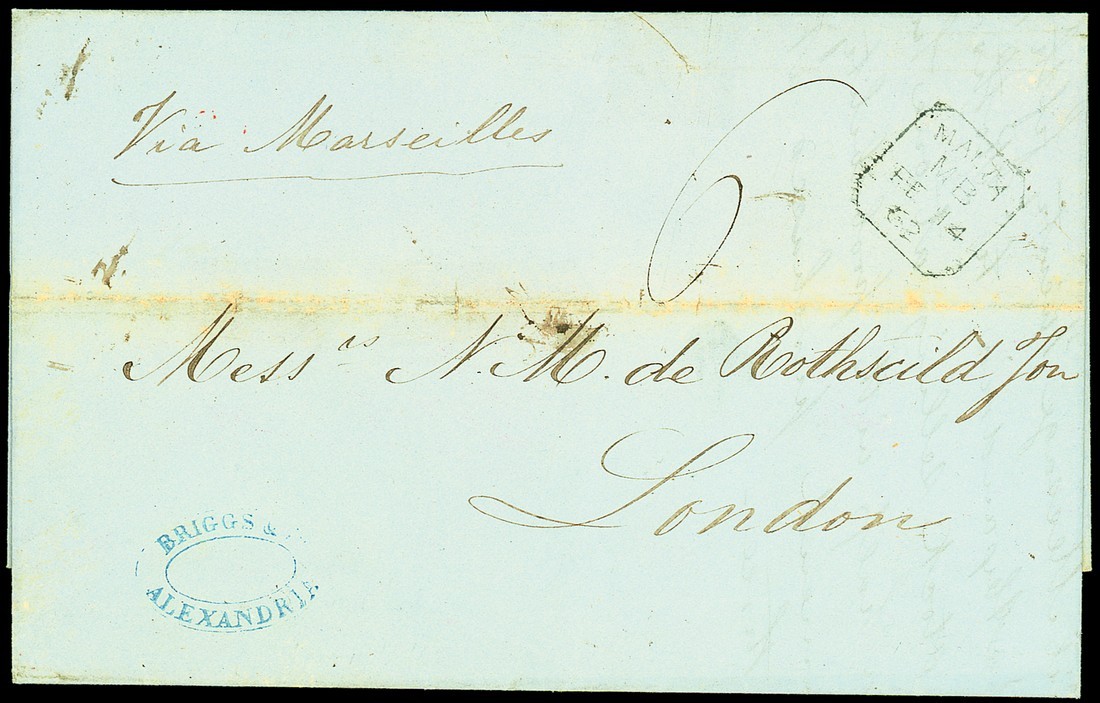 Via Marseilles
6
MALTA
MB
FE 14
62
Mess rs N. M. de Rothscild Son
London
BRIGGS &
ALEXANDRIE